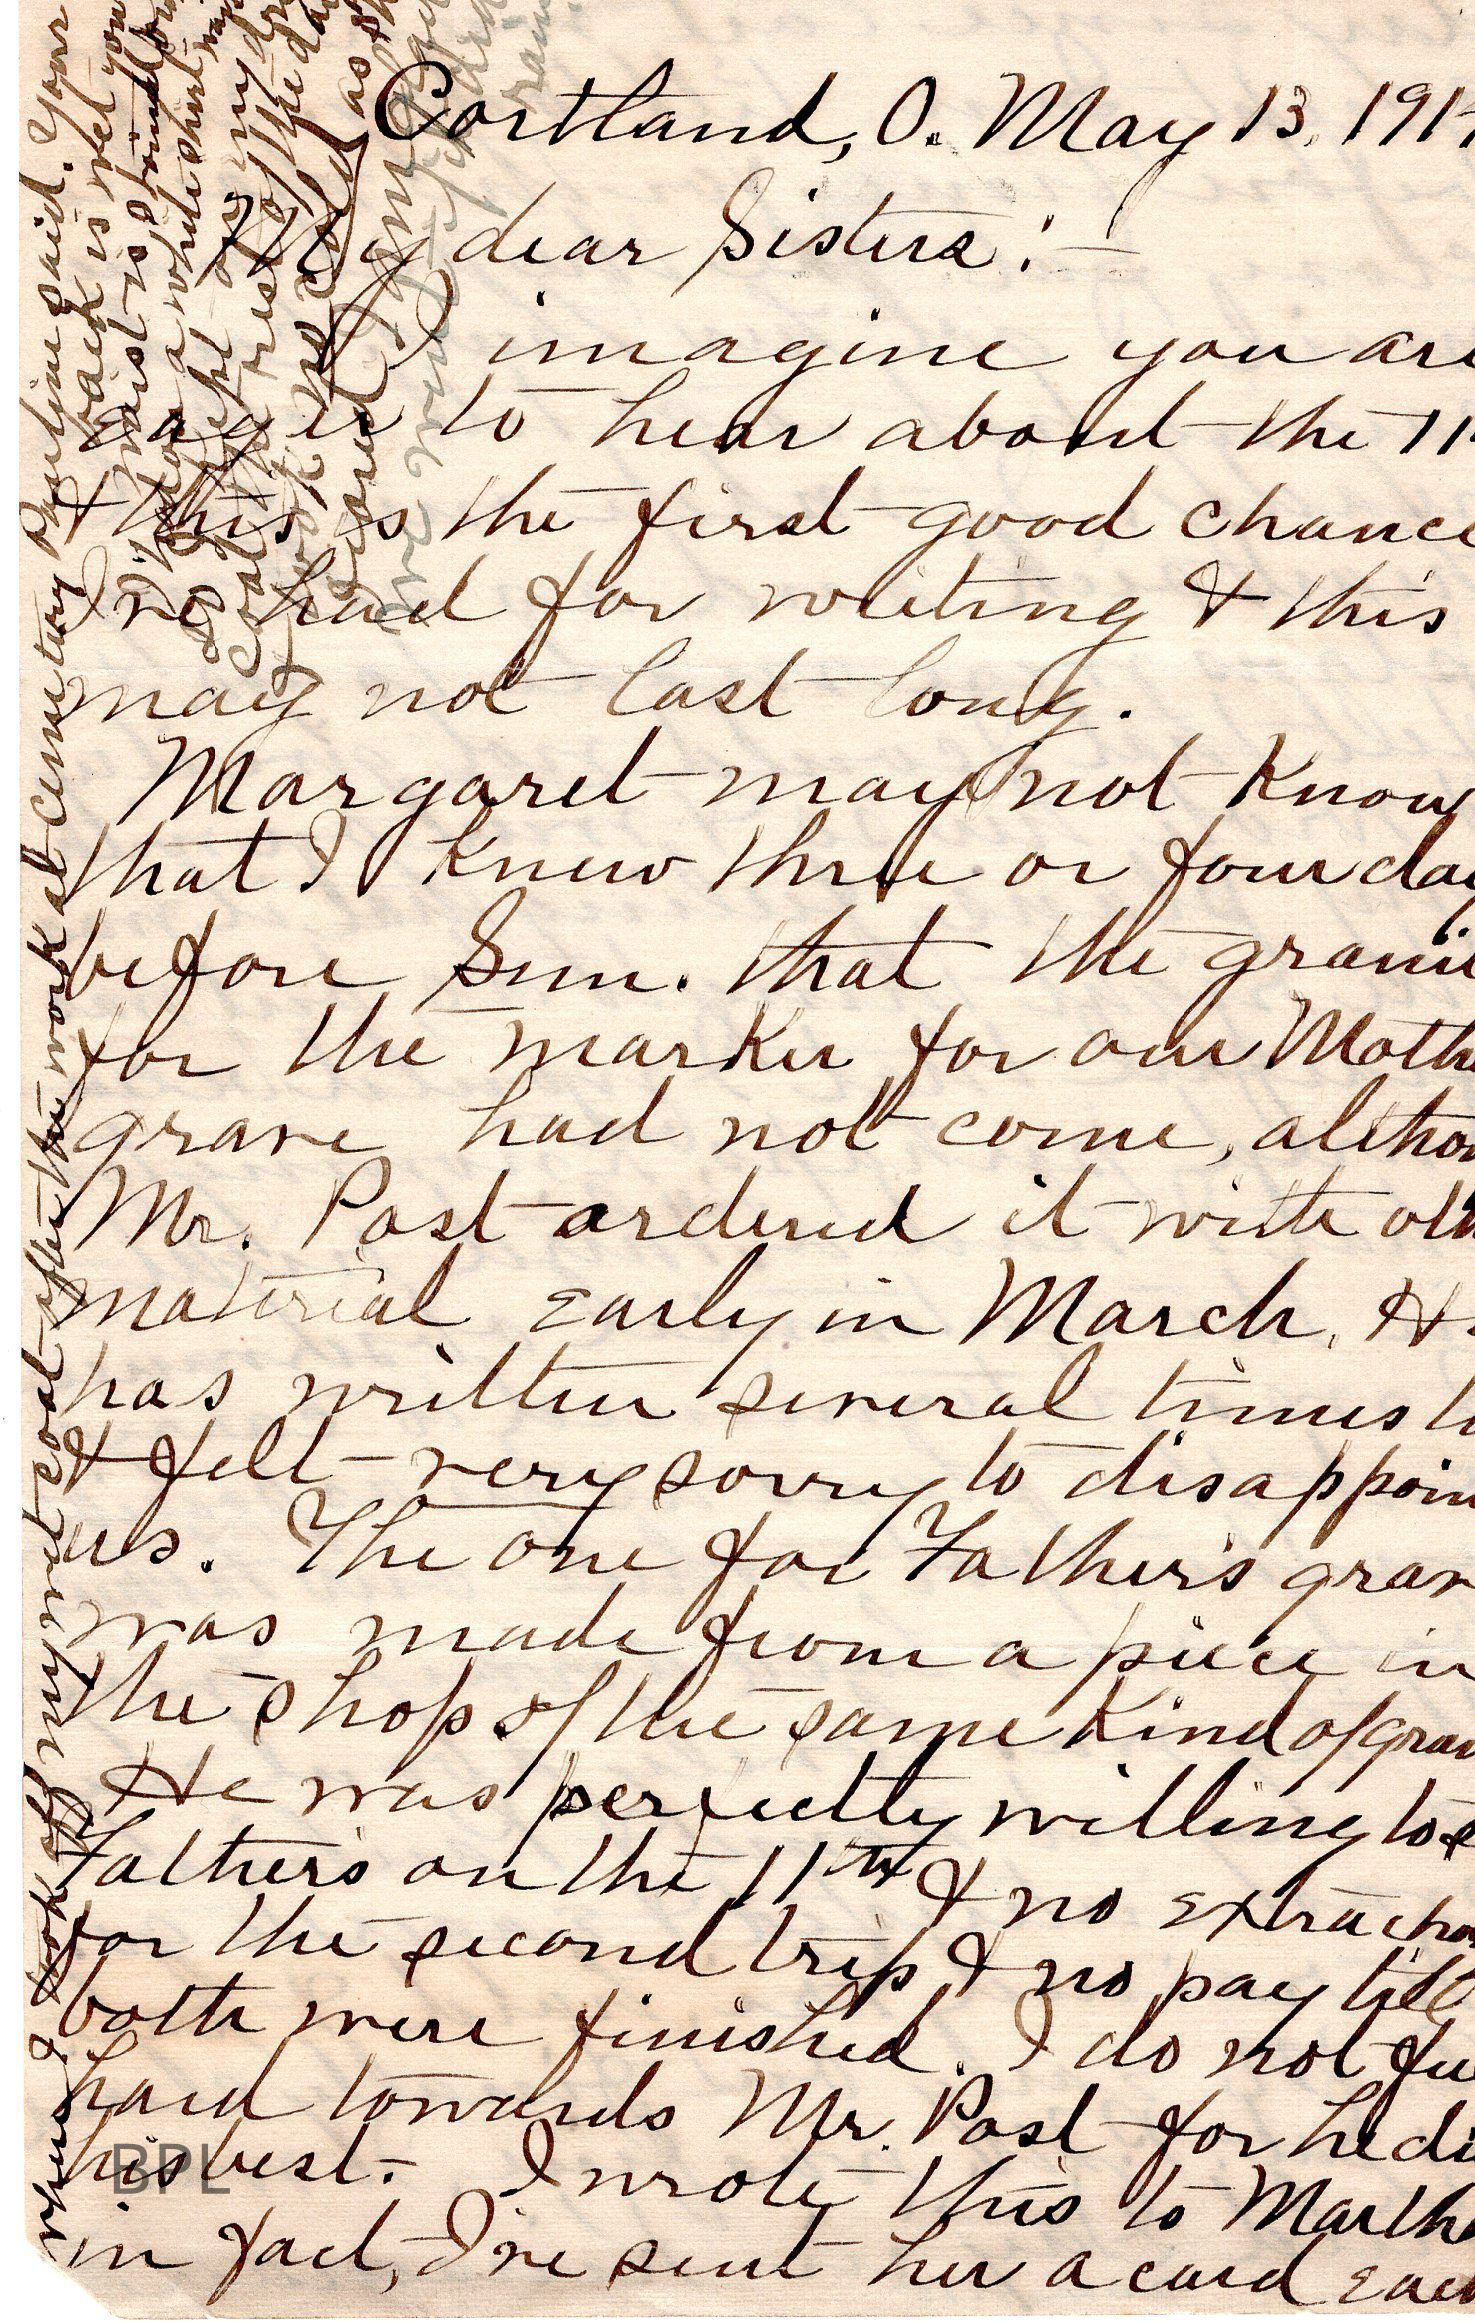 Cortland, O. May 13, 191
My dear Sisters:—
I imagine you are
eager to hear about the 11
& this is the first good chance
I've had for writing & this
may not last long.
Margaret may not know
that I knew three or four day
before Sun. that the grani
for the marker for our Moth
grave had not come, altho
Mr. Post ordered it with oth
material early in March. H
has written several times t
& felt very sorry to disappoin
us. The one for Father's grav
was made from a piece in
the shop of the same kind of gran
He was perfectly willing to s
Father's on the 11th & no extra cha
for the second trip & no pay till
both were finished. I do not fee
hard towards Mr. Post for he di
his best. I wrote this to Martha
in fact, I've sent her a card each
when I took off my wet coat after the work at cemetery Pauline said. Your
back is wet you
waist is
BPL